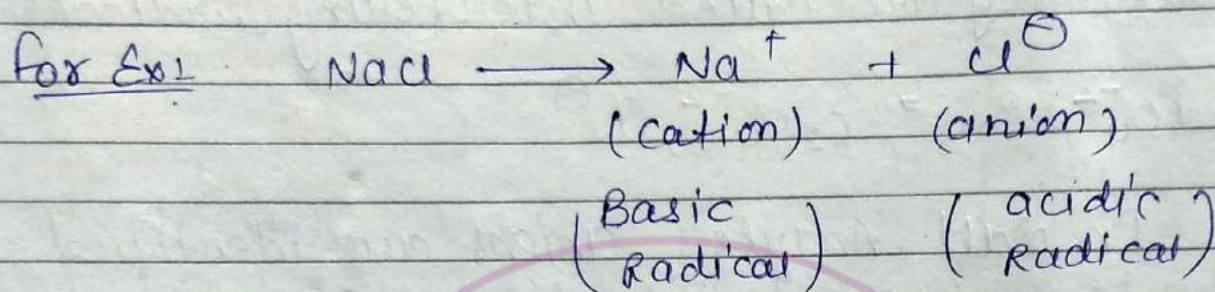 For Ex: NaCl ⟶ Na⁺ + Cl⊖
(Cation) (anion)
(Basic Radical) (acidic Radical)